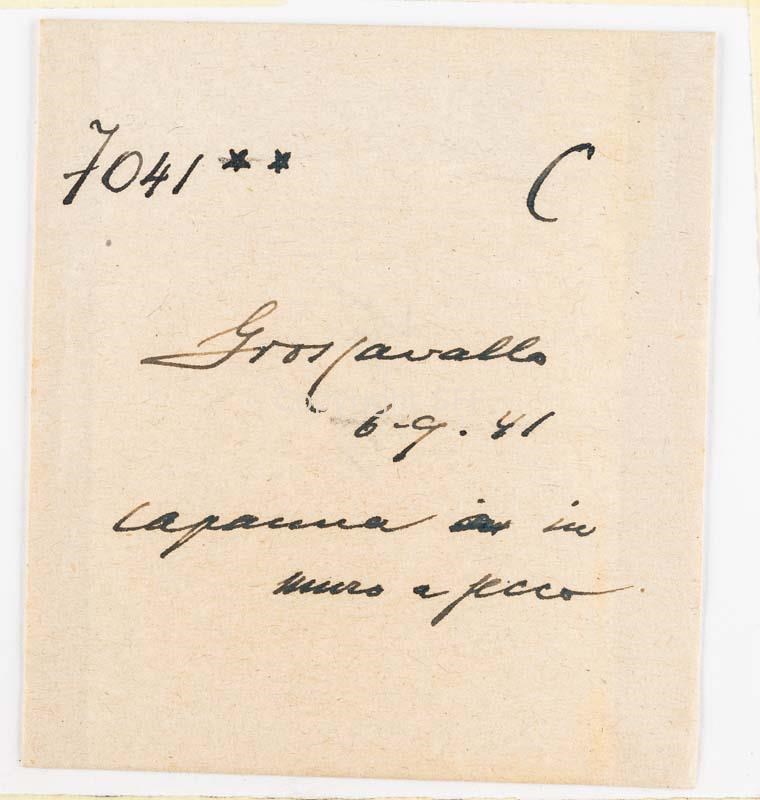 7041 ** C
Groscavallo
6-9.41
capanna in
muro a secco